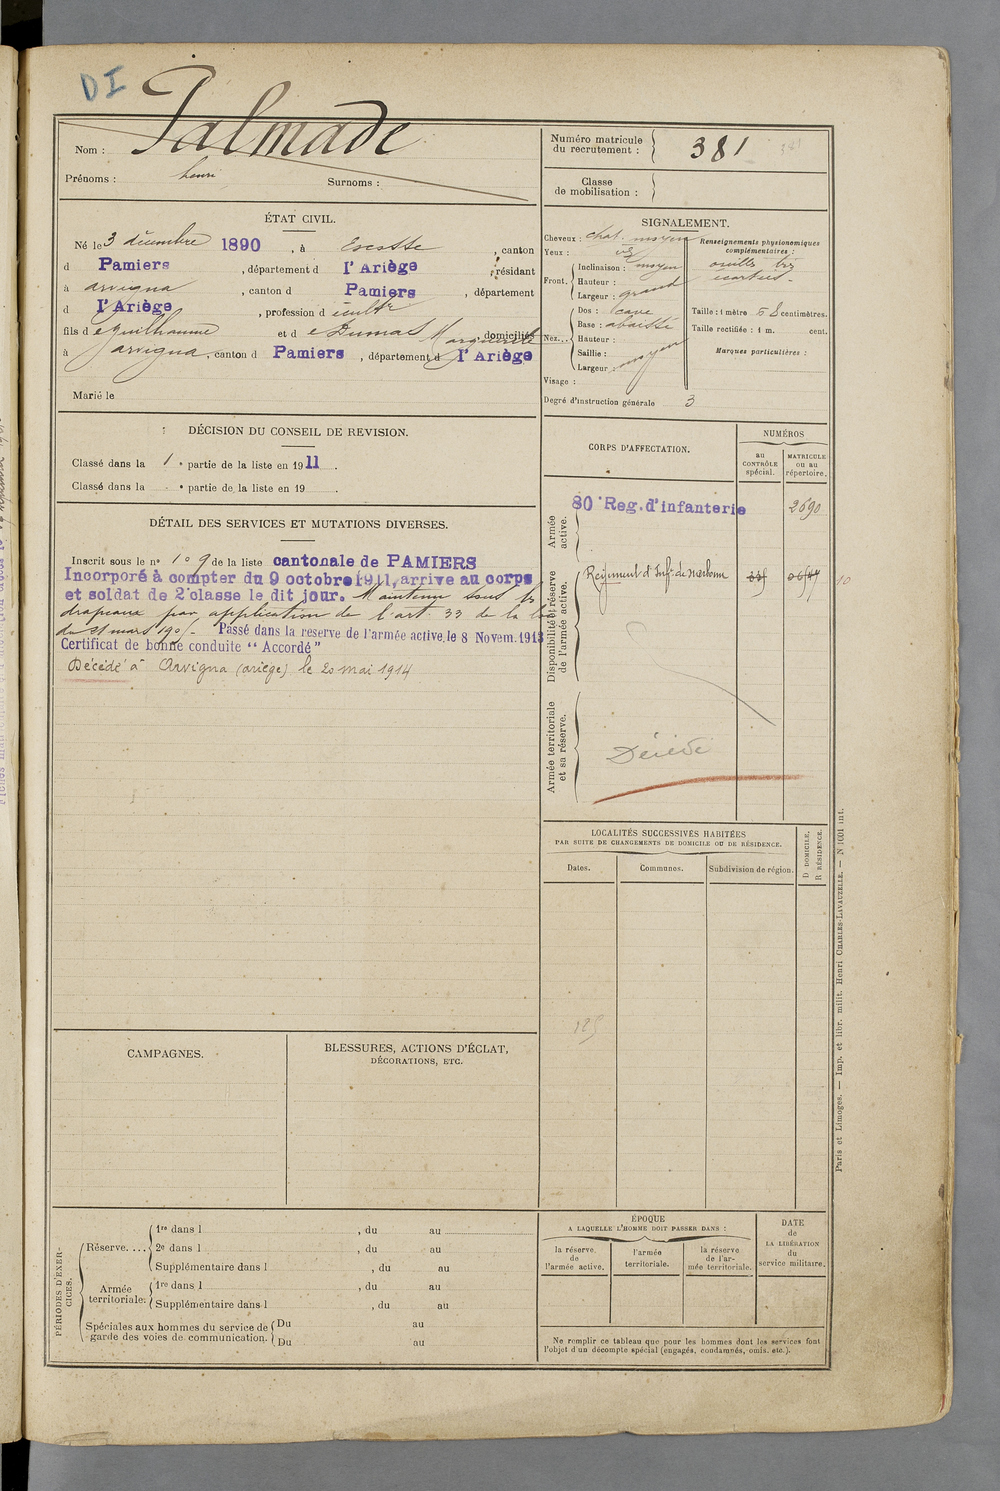 DI
Nom : Palmade
Prénoms : henri Surnoms :
Numéro matricule
du recrutement : 381
Classe
de mobilisation :
ÉTAT CIVIL.
Né le 3 décembre 1890, à Escosse, canton
d Pamiers, département d l'Ariège, résidant
à arvigna, canton d Pamiers, département
d l'Ariège, profession d
fils d e guilhaume et d e Dumas Marguerite domiciliés
à arvigna, canton d Pamiers, département d l'Ariège
Marié le
SIGNALEMENT.
Cheveux : chat. moyen
Yeux :
Front. Inclinaison : moyen
Hauteur :
Largeur : grand
Nez... Dos : cave
Base : abaissée
Hauteur :
Saillie :
Largeur : moyen
Visage :
Degré d'instruction générale 3
Renseignements physionomiques
complémentaires :
oreilles très
écartées
Taille : 1 mètre 58 centimètres.
Taille rectifiée : 1 m. cent.
Marques particulières :
DÉCISION DU CONSEIL DE REVISION.
Classé dans la 1 e partie de la liste en 1911.
Classé dans la e partie de la liste en 19 .
DÉTAIL DES SERVICES ET MUTATIONS DIVERSES.
Inscrit sous le n° 109 de la liste cantonale de PAMIERS
Incorporé à compter du 9 octobre 1911, arrive au corps
et soldat de 2e classe le dit jour. Maintenu sous les
drapeaux par application de l'art. 33 de la loi
du 21 mars 1905 - Passé dans la reserve de l'armée active, le 8 Novem. 1913
Certificat de bonne conduite "Accordé"
Décédé à Arvigna (ariège) le 20 mai 1914
CORPS D'AFFECTATION.
NUMÉROS
au
CONTRÔLE
spécial.
MATRICULE
ou au
répertoire.
Armée
active.
80e Reg. d'infanterie 2690
Disponibilité et réserve
de l'armée active.
Régiment d'Infie de Narbonne
Armée territoriale
et sa réserve.
Décédé
LOCALITÉS SUCCESSIVES HABITÉES
PAR SUITE DE CHANGEMENTS DE DOMICILE OU DE RÉSIDENCE.
D DOMICILE,
R RÉSIDENCE.
Dates. Communes. Subdivision de région.
CAMPAGNES.
BLESSURES, ACTIONS D'ÉCLAT,
DÉCORATIONS, ETC.
PÉRIODES D'EXERCICES.
Réserve.... 1re dans l , du au
2e dans l , du au
Supplémentaire dans l , du au
Armée
territoriale. 1re dans l , du au
Supplémentaire dans l , du au
Spéciales aux hommes du service de
garde des voies de communication. Du au
Du au
ÉPOQUE
A LAQUELLE L'HOMME DOIT PASSER DANS :
la réserve
de
l'armée active.
l'armée
territoriale.
la réserve
de l'ar-
mée territoriale.
DATE
de
LA LIBÉRATION
du
service militaire.
Ne remplir ce tableau que pour les hommes dont les services font
l'objet d'un décompte spécial (engagés, condamnés, omis, etc.).
Paris et Limoges. — Imp. et libr. milit. Henri CHARLES-LAVAUZELLE. — N 1001 int.